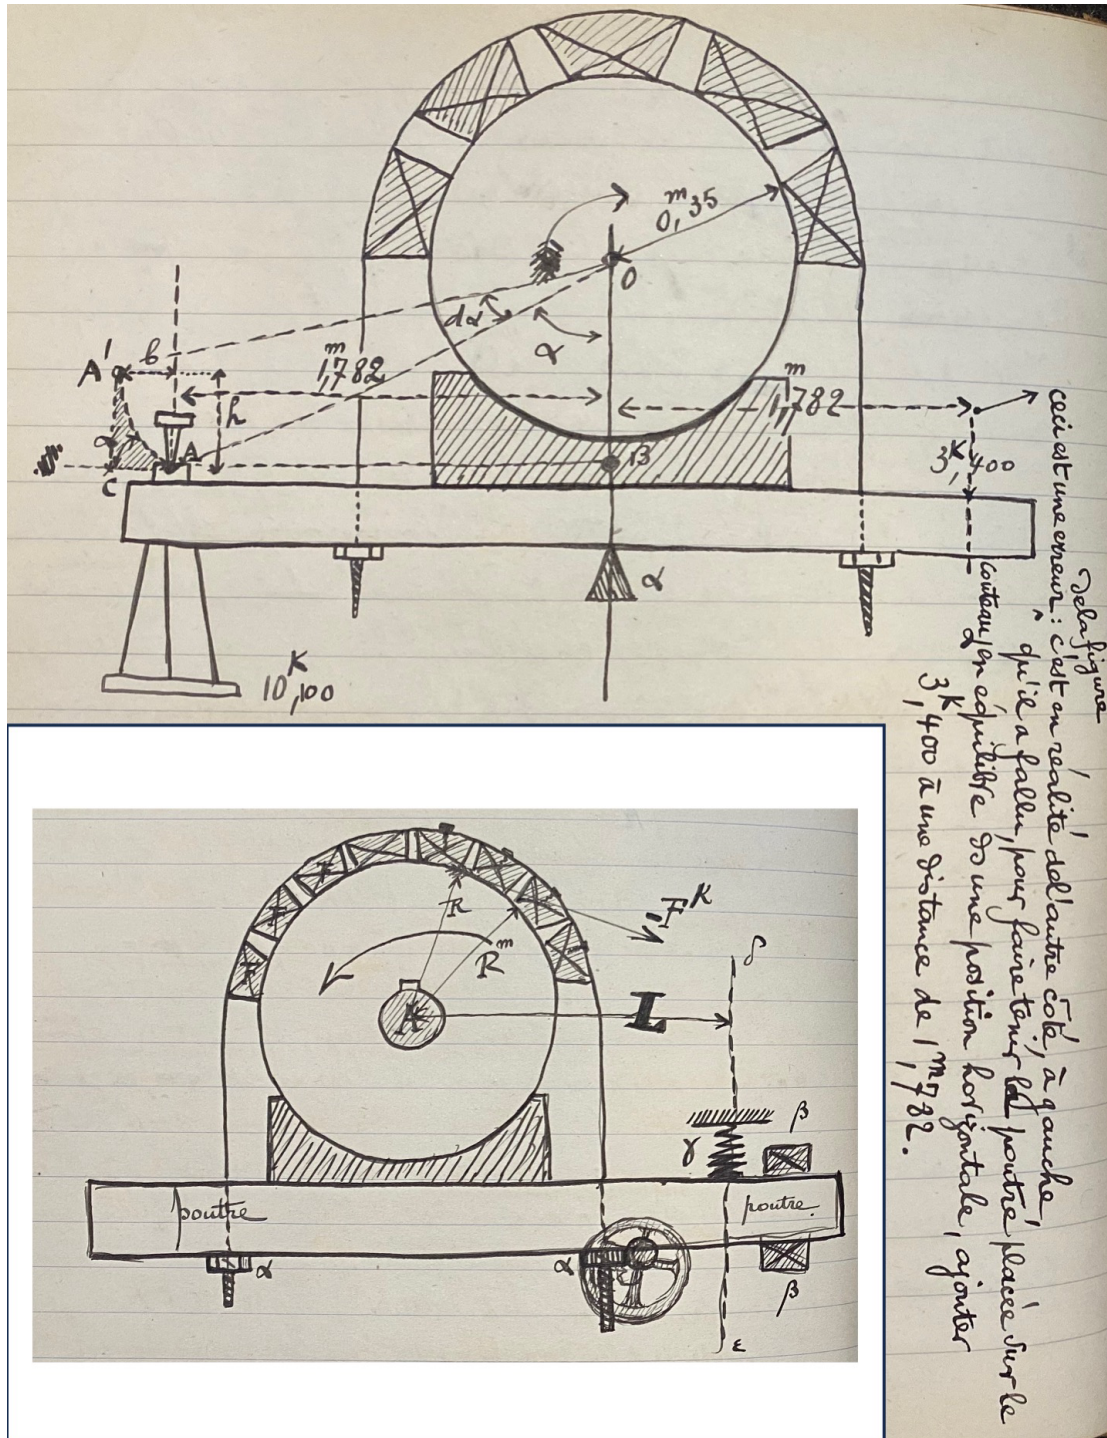 m
0,35
O
dα
α
A'
b
m
1,782
h
m
1,782
α
A
B
C
K
3,400
α
K
10,100
ceci est une erreur de la figure : c'est en réalité de l'autre côté, à gauche,
qu'il a fallu, pour faire tenir la poutre placée sur le
couteau α en équilibre ds une position horizontale, ajouter
3K,400 à une distance de 1m,782.
F
F
F
R
F K
R m
A
L
δ
γ
β
poutre
poutre.
α
α
β
ε